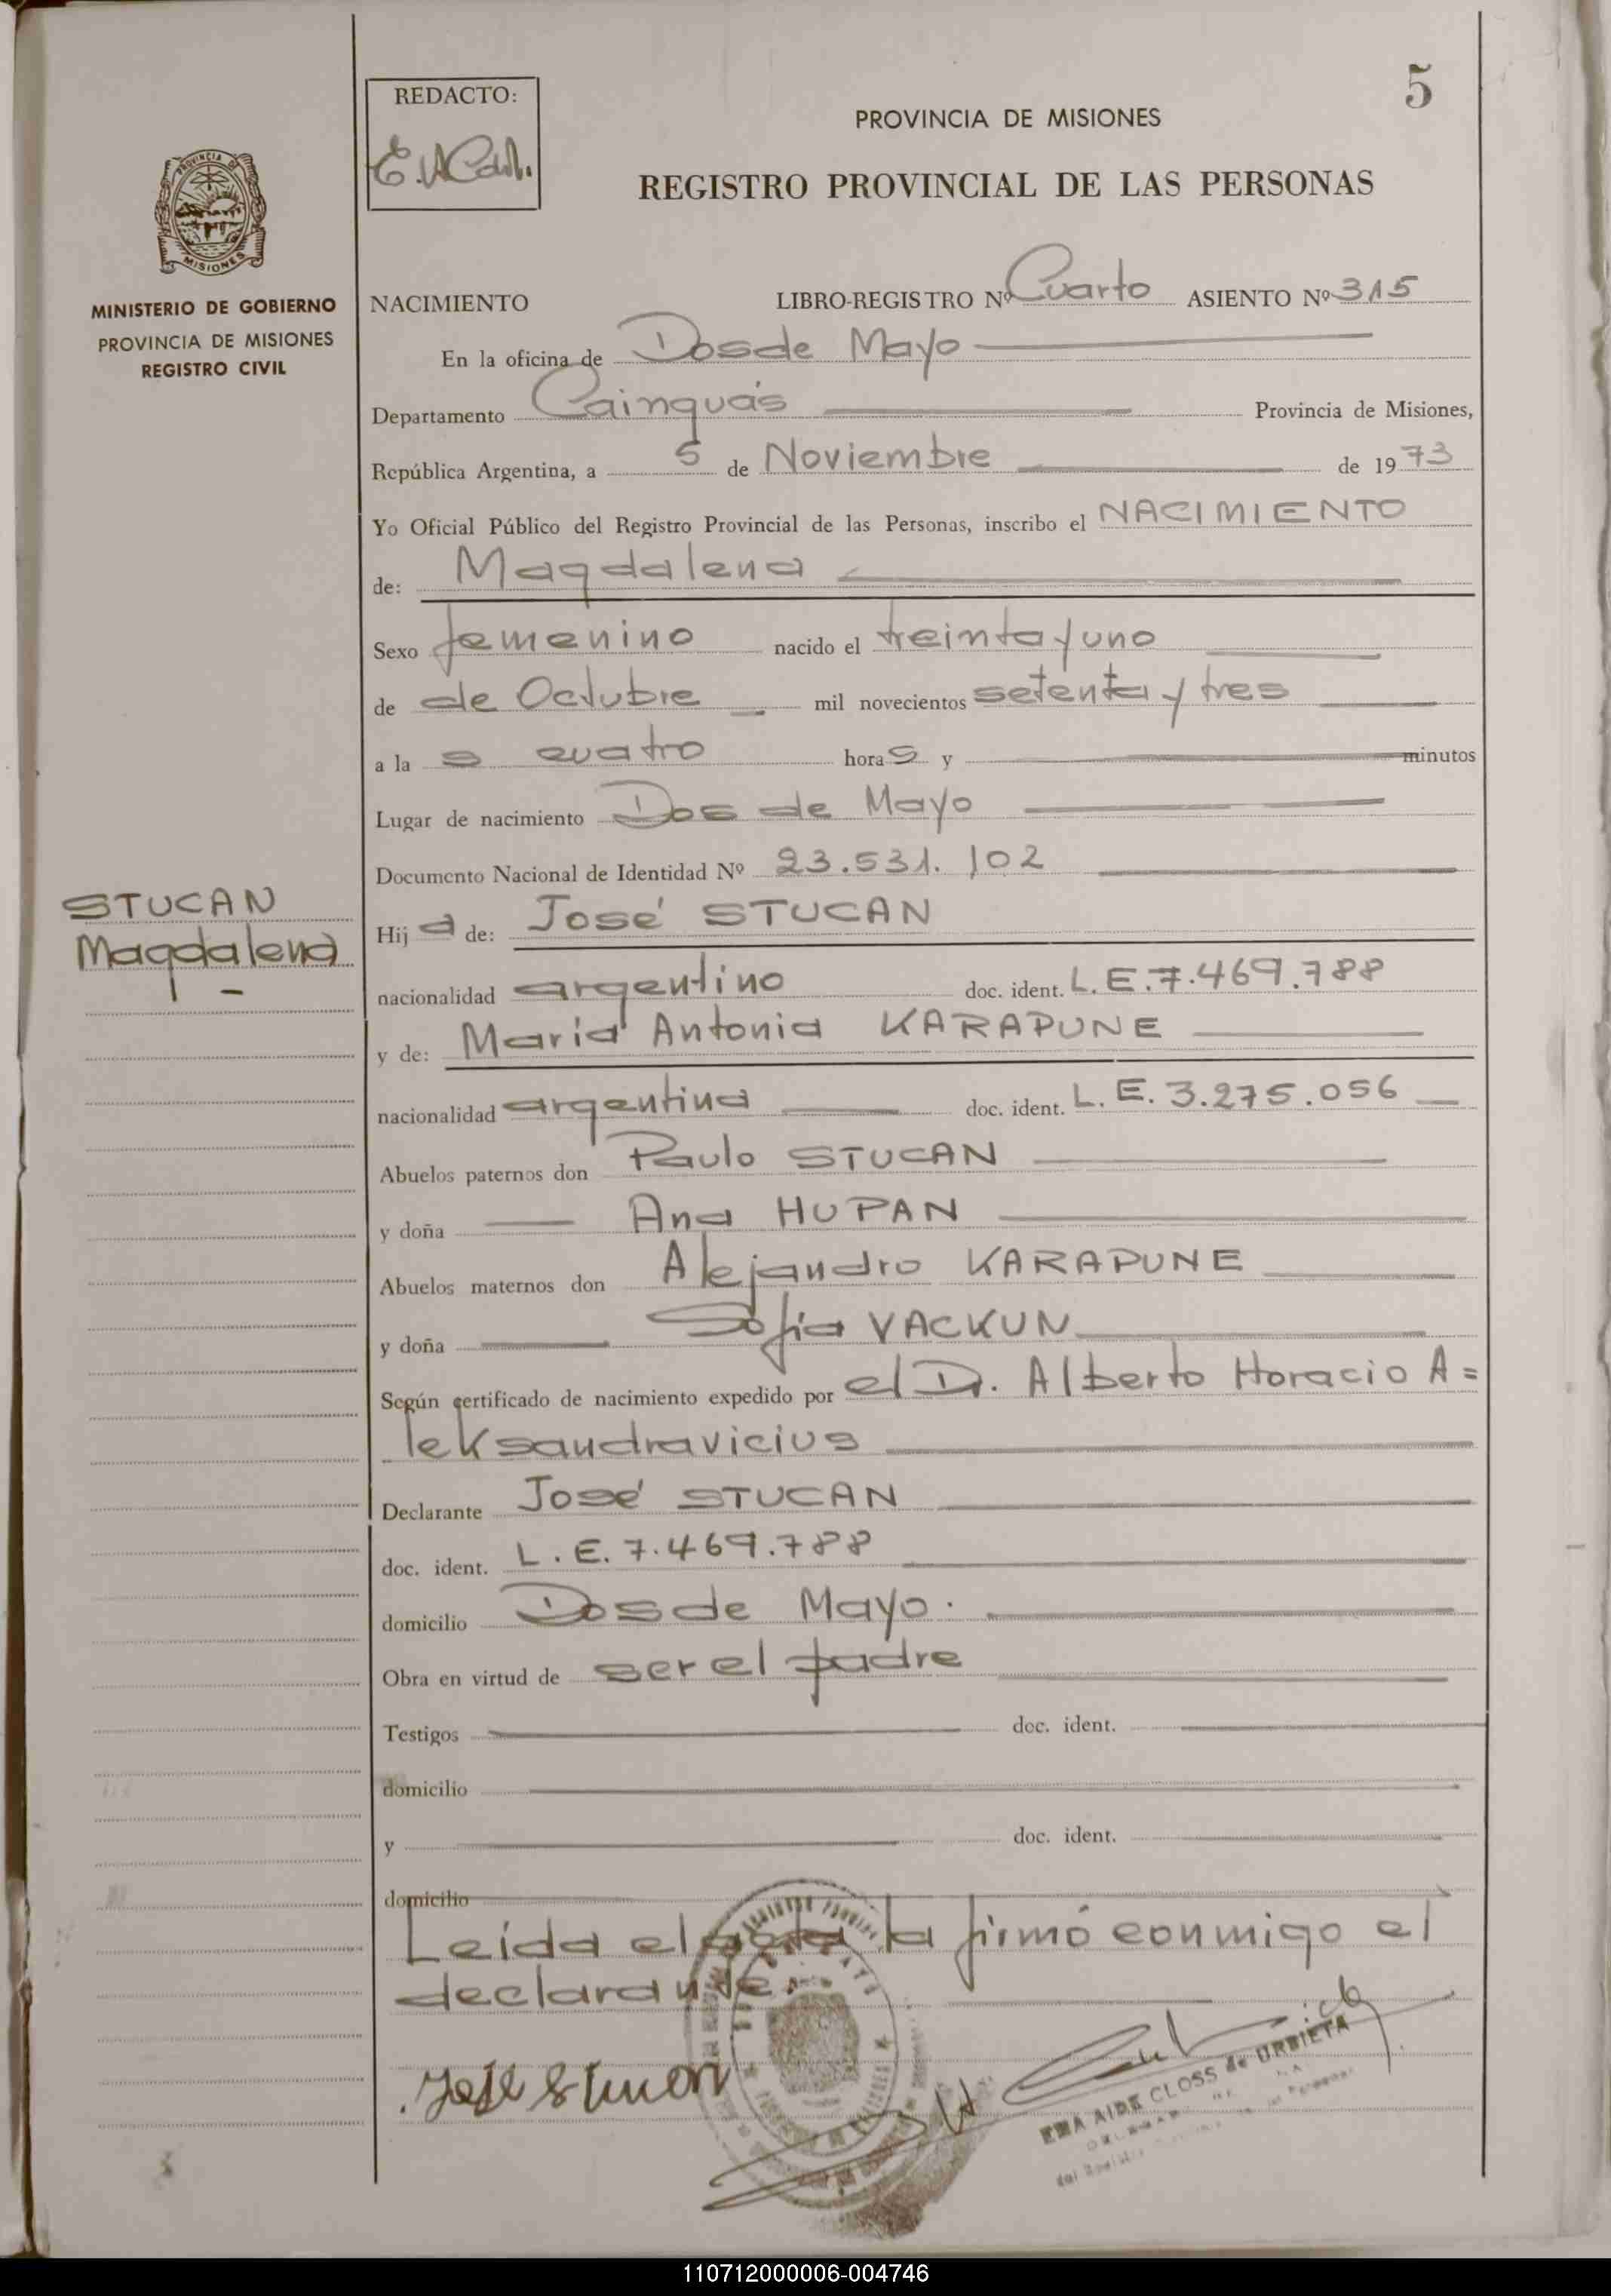 5
REDACTO:
PROVINCIA DE MISIONES
REGISTRO PROVINCIAL DE LAS PERSONAS
PROVINCIA DE
MISIONES
MINISTERIO DE GOBIERNO
PROVINCIA DE MISIONES
REGISTRO CIVIL
NACIMIENTO LIBRO-REGISTRO Nº Cuarto ASIENTO Nº 315
En la oficina de Dos de Mayo
Departamento Cainguás Provincia de Misiones,
República Argentina, a 5 de Noviembre de 1973
Yo Oficial Público del Registro Provincial de las Personas, inscribo el NACIMIENTO
de: Magdalena
Sexo femenino nacido el treinta y uno
de de Octubre mil novecientos setenta y tres
a la s cuatro hora s y minutos
Lugar de nacimiento Dos de Mayo
Documento Nacional de Identidad Nº 23.531.102
STUCAN
Magdalena
Hij a de: José STUCAN
nacionalidad argentino doc. ident. L.E.7.469.788
y de: María Antonia KARAPUNE
nacionalidad argentina doc. ident. L.E. 3.275.056
Abuelos paternos don Paulo STUCAN
y doña Ana HUPAN
Abuelos maternos don Alejandro KARAPUNE
y doña Sofia VACKUN
Según certificado de nacimiento expedido por el Dr. Alberto Horacio A=
leksandravicius
Declarante José STUCAN
doc. ident. L.E. 7.469.788
domicilio Dos de Mayo.
Obra en virtud de ser el padre
Testigos doc. ident.
domicilio
y doc. ident.
domicilio
Leída el acta la firmó conmigo el
declarante.
EMA AIDE CLOSS de URBIETA
110712000006-004746